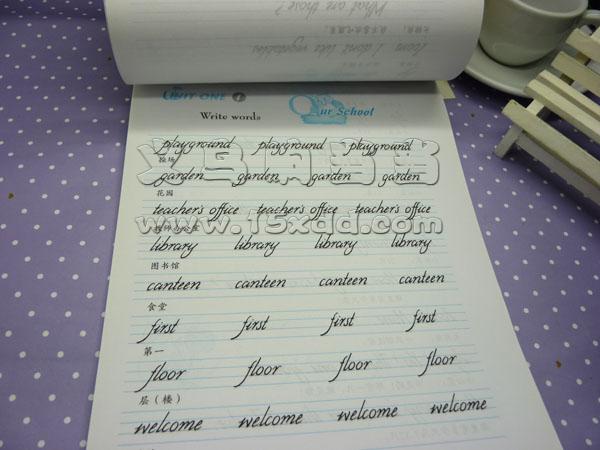 What are those?
UNIT ONE 1
Our School
Write words
playground playground playground
操场
garden garden garden garden
花园
teacher's office teacher's office teacher's office
www.15xdd.com
library library library library
图书馆
canteen canteen canteen canteen
食堂
first first first first
第一
floor floor floor floor
层(楼)
welcome welcome welcome welcome